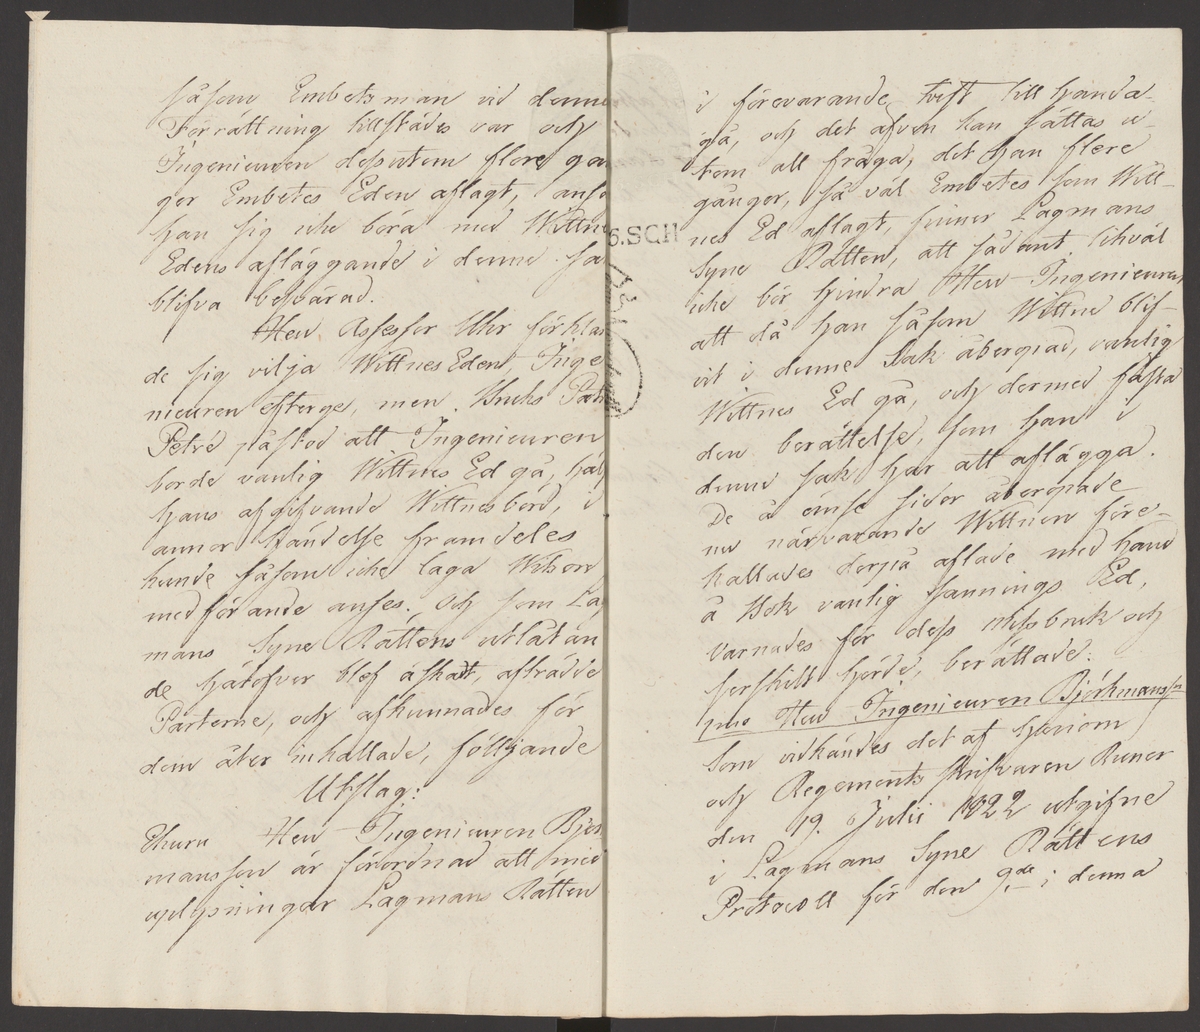 såsom Embetsman vid denne
Förrättning tillstädes var och
Ingenieuren dessutom flere gån
ger Embetes Eden aflagt, anse
han sig icke böra med Wittne
Edens afläggande i denne sa
blifva besvärad.
Herr Assessor Uhr förkla
de sig vilja Wittnes Eden, Inge
nieuren efterge, men Bruks Pat
Petré påstod att Ingenieuren
borde vanlig Wittnes Ed gå,
hans afgifvande Wittnesbörd, i
annor händelse framdeles
kunde såsom icke laga Witsord
medförande anses. Och som La
mans Syne Rättens utlåtan
de häröfver blef äskadt, afträdde
Parterne, och afkunnades för
dem åter inkallade, följande
Utslag:
Ehuru Herr Ingenieuren Björ
mansson är förordnad att med
upplysningar Lagmans Rätten
i förevarande tvist till handa
gå, och det äfven kan sättas u-
tom all fråga, det han flere
gånger, så väl Embetes som Witt-
nes Ed aflagt, finner Lagmans
Syne Rätten, att sådant likväl
icke bör hindra Herr Ingenieuren
att då han såsom Wittne blif-
vit i denne Sak åberopad, vanlig
Wittnes Ed gå, och dermed fästa
den berättelse, som han i
denne sak har att aflägga.
De å ömse sidor åberopade
nu närvarande Wittnen före-
kallades derpå aflade med hand
å Bok vanlig sannings Ed,
varnades för dess missbruk och
serskilt hörde, berättade:
1mo Herr Ingenieuren Björkmansson
Som vidkändes det af honom
och Regements skrifvaren Runer
den 19. Julii 1822 utgifne
i Lagmans Syne Rättens
Protocoll för den 9de i denna
6.SCH